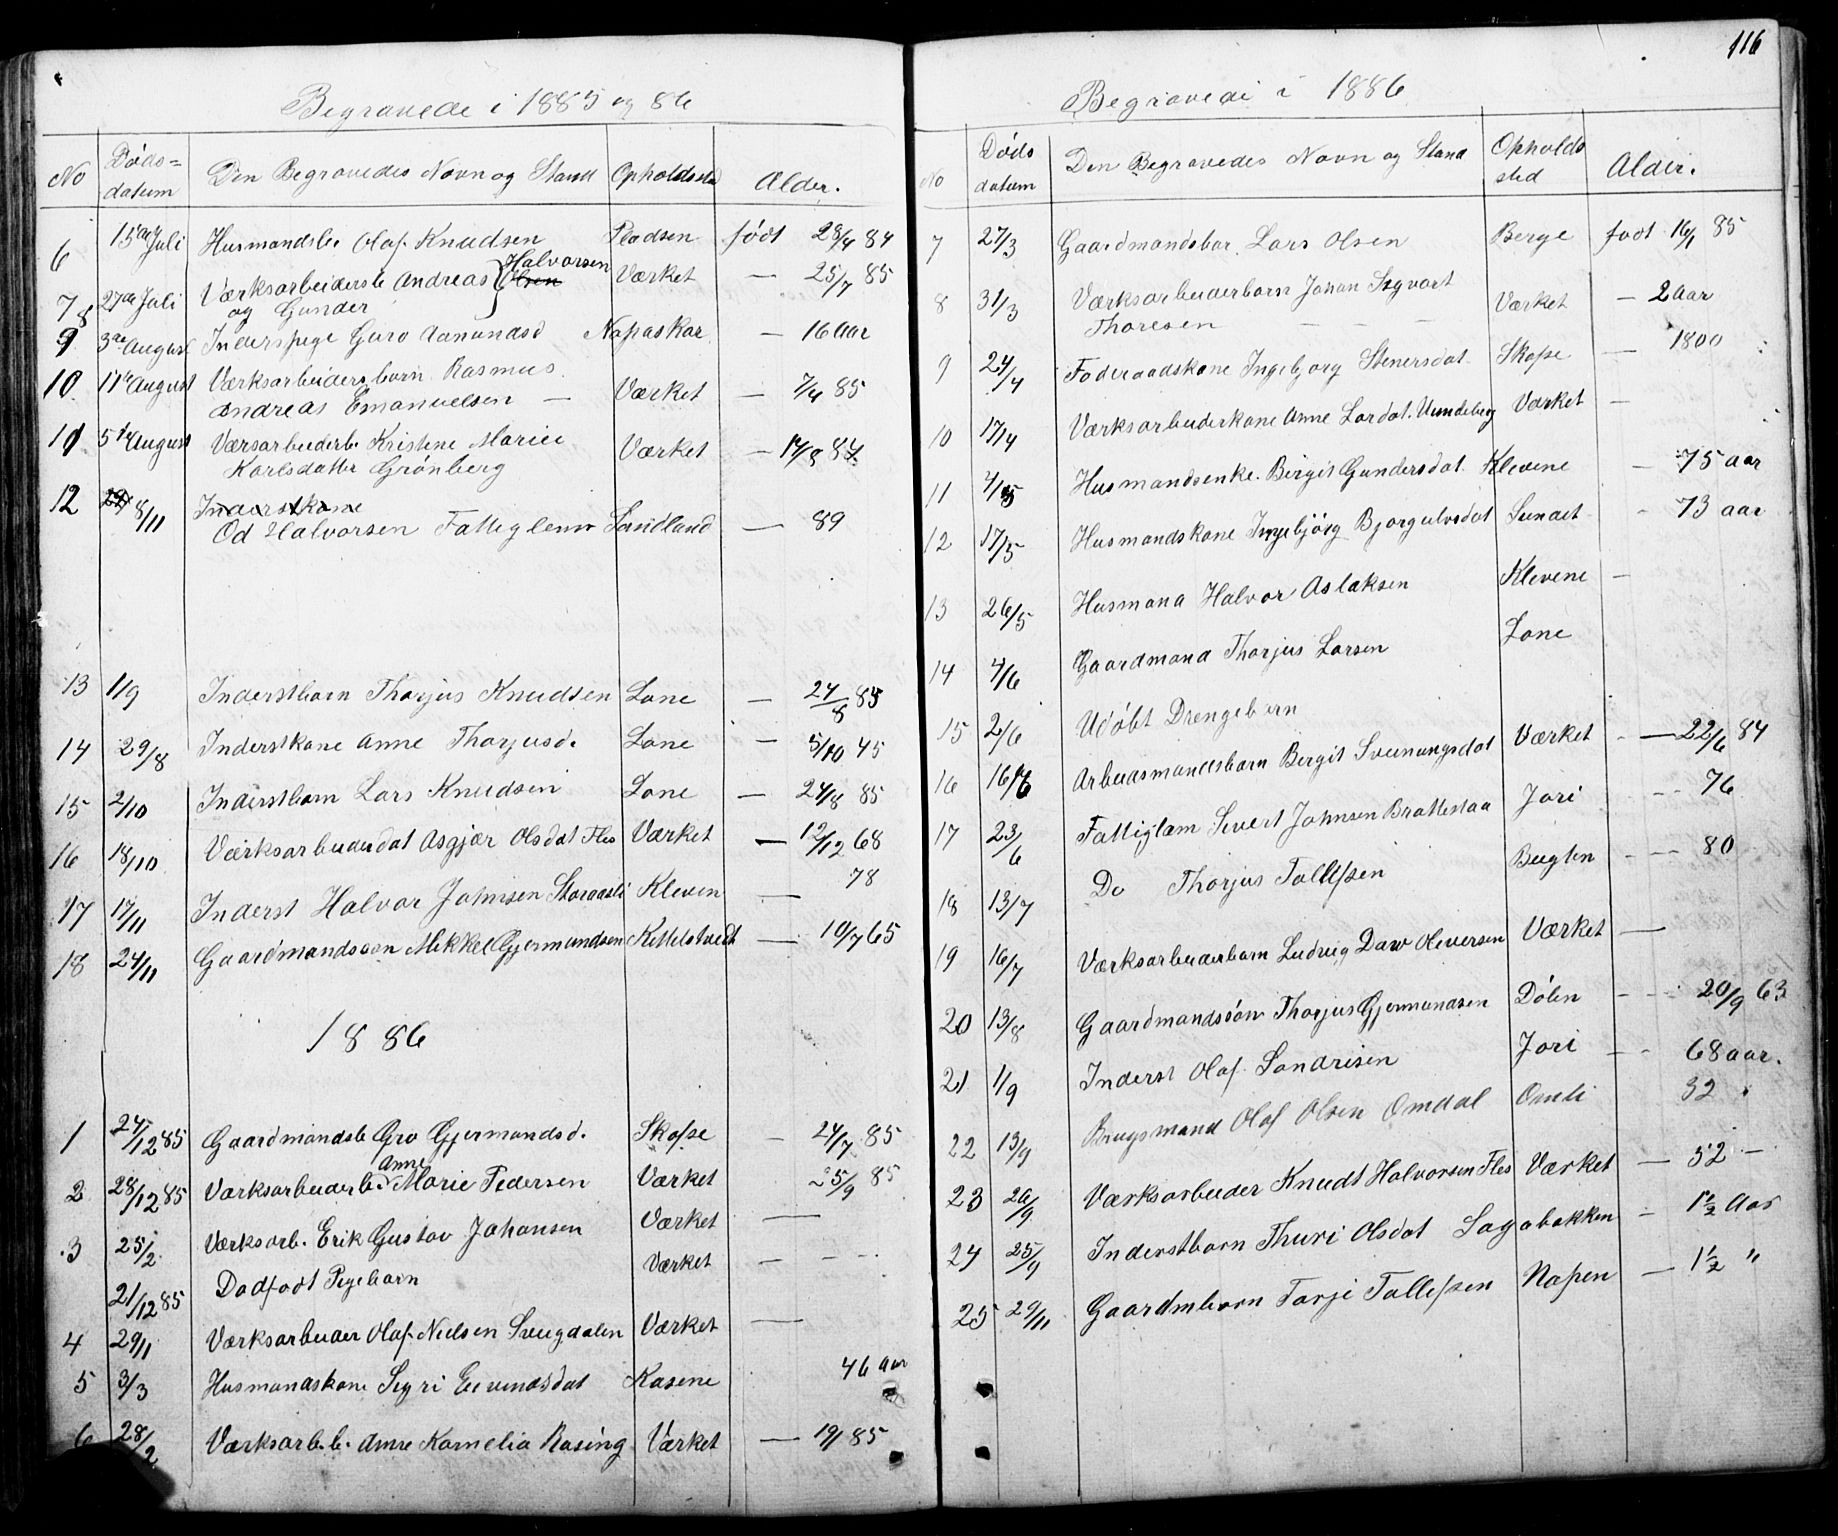 Begravede i 1885 og 86
No Døds=datum Den Begravedes Navn og Stand Opholdssted Alder.
6 15de Juli Husmandsb. Olaf Knudsen Pladsen født 23/4 84
7 27de Juli Værksarbeidersb. Andreas Halvorsen Værket — 25/7 85
8 og Gunder
9 3die August Inderspige Guro Aamundsd Napaskar — 16 Aar
10 11te August Værksarbeidersborn Rasmus
Andreas Emanuelsen — Værket — 7/4 85
11 5te August Værsarbeiderb. Kristine Mariei
Karlsdatter Grønberg Værket — 14/8 84
12 8/11 Inderstkone
Od Halvorsen Fattiglem Sandland — 89
13 1/9 Inderstbarn Thorjus Knudsen Lone — 24/8 85
14 29/8 Inderstkone Anne Thorjusd. Lone — 5/10 45
15 2/10 Inderstbarn Lars Knudsen Lone — 24/8 85
16 18/10 Værksarbeiderdat Asgjær Olsdat Fles Værket — 12/12 68
17 17/11 Inderst Halvor Johnsen Storaasli Kleven — 78
18 24/11 Gaardmandsøn Mikkel Gjermundsen Kittelstvedt — 10/7 65
1886
1 24/12 85 Gaardmandsb Gro Gjermundsd. Skafse — 24/7 85
2 28/12 85 Værksarbeiderb. Anne Marie Pedersen Værket 25/9 85
3 25/2 Værksarb. Erik Gustav Johansen Værket —
21/12 85 Dødfødt Pigebarn Værket — — —
4 29/1 Værksarbeider Olaf Nielsen Sveigdalen Værket —
5 3/3 Husmandskone Sigri Eivindsdat Kasene 46 aar
6 28/2 Værksarb.b. Anne Kornelia Rasing Værket — 19/1 85
116
Begravede i 1886
No Døds datum Den Begravedes Navn og Stand Opholds sted Alder.
7 27/3 Gaardmandsbar Lars Olsen Berge født 16/1 85
8 31/3 Værksarbeiderbarn Johan Sigvart
Thoresen — — — Værket — 2 Aar
9 24/4 Foderaadskone Ingebjorg Stenersdat. Skafse — 1800
10 17/4 Værksarbeiderkone Anne Larsdat. Uundeberg Værket —
11 4/5 Husmandsenke Birgit Gundersdat. Klevene — 75 aar
12 17/5 Husmandskone Ingebjörg Bjorgulvsdat Sundet - 73 aar
13 26/5 Husmand Halvor Aslaksen Klevene —
14 4/6 Gaardmand Thorjus Larsen Lone
15 2/6 Udøbt Drengebarn
16 16/6 Arbeidsmandsbarn Bergit Sveinungsdat Værket — 22/6 84
17 23/6 Fattiglam Sivert Johnsen Brattestaa Jori — 76
18 13/7 Do Thorjus Tallefsen Bugten — 80
19 16/7 Værksarbeiderbarn Ludvig Daw Oliversen Værket —
20 13/8 Gaardmandssön Thorjus Gjermundsen Dölen — 20/9 63
21 1/9 Inderst Olaf Sandrisen Jori — 68 aar.
22 13/9 Brugsmand Olaf Olsen Omdal Omli 32
23 20/9 Værksarbeider Knudt Halvorsen Fles Værket — 52 —
24 25/9 Inderstbarn Thuri Olsdat Sagabakken — 1½ Aar
25 29/11 Gaardmbarn Tarje Tallefsen Napen — 1½ "